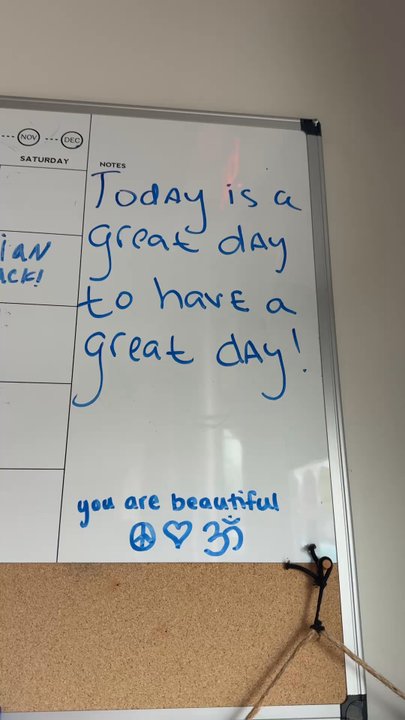 NOV DEC
SATURDAY
NOTES
TODAY is a
great dAy
iAN
ACK!
to havE a
great dAy!
you are beautiful
☮♡ॐ